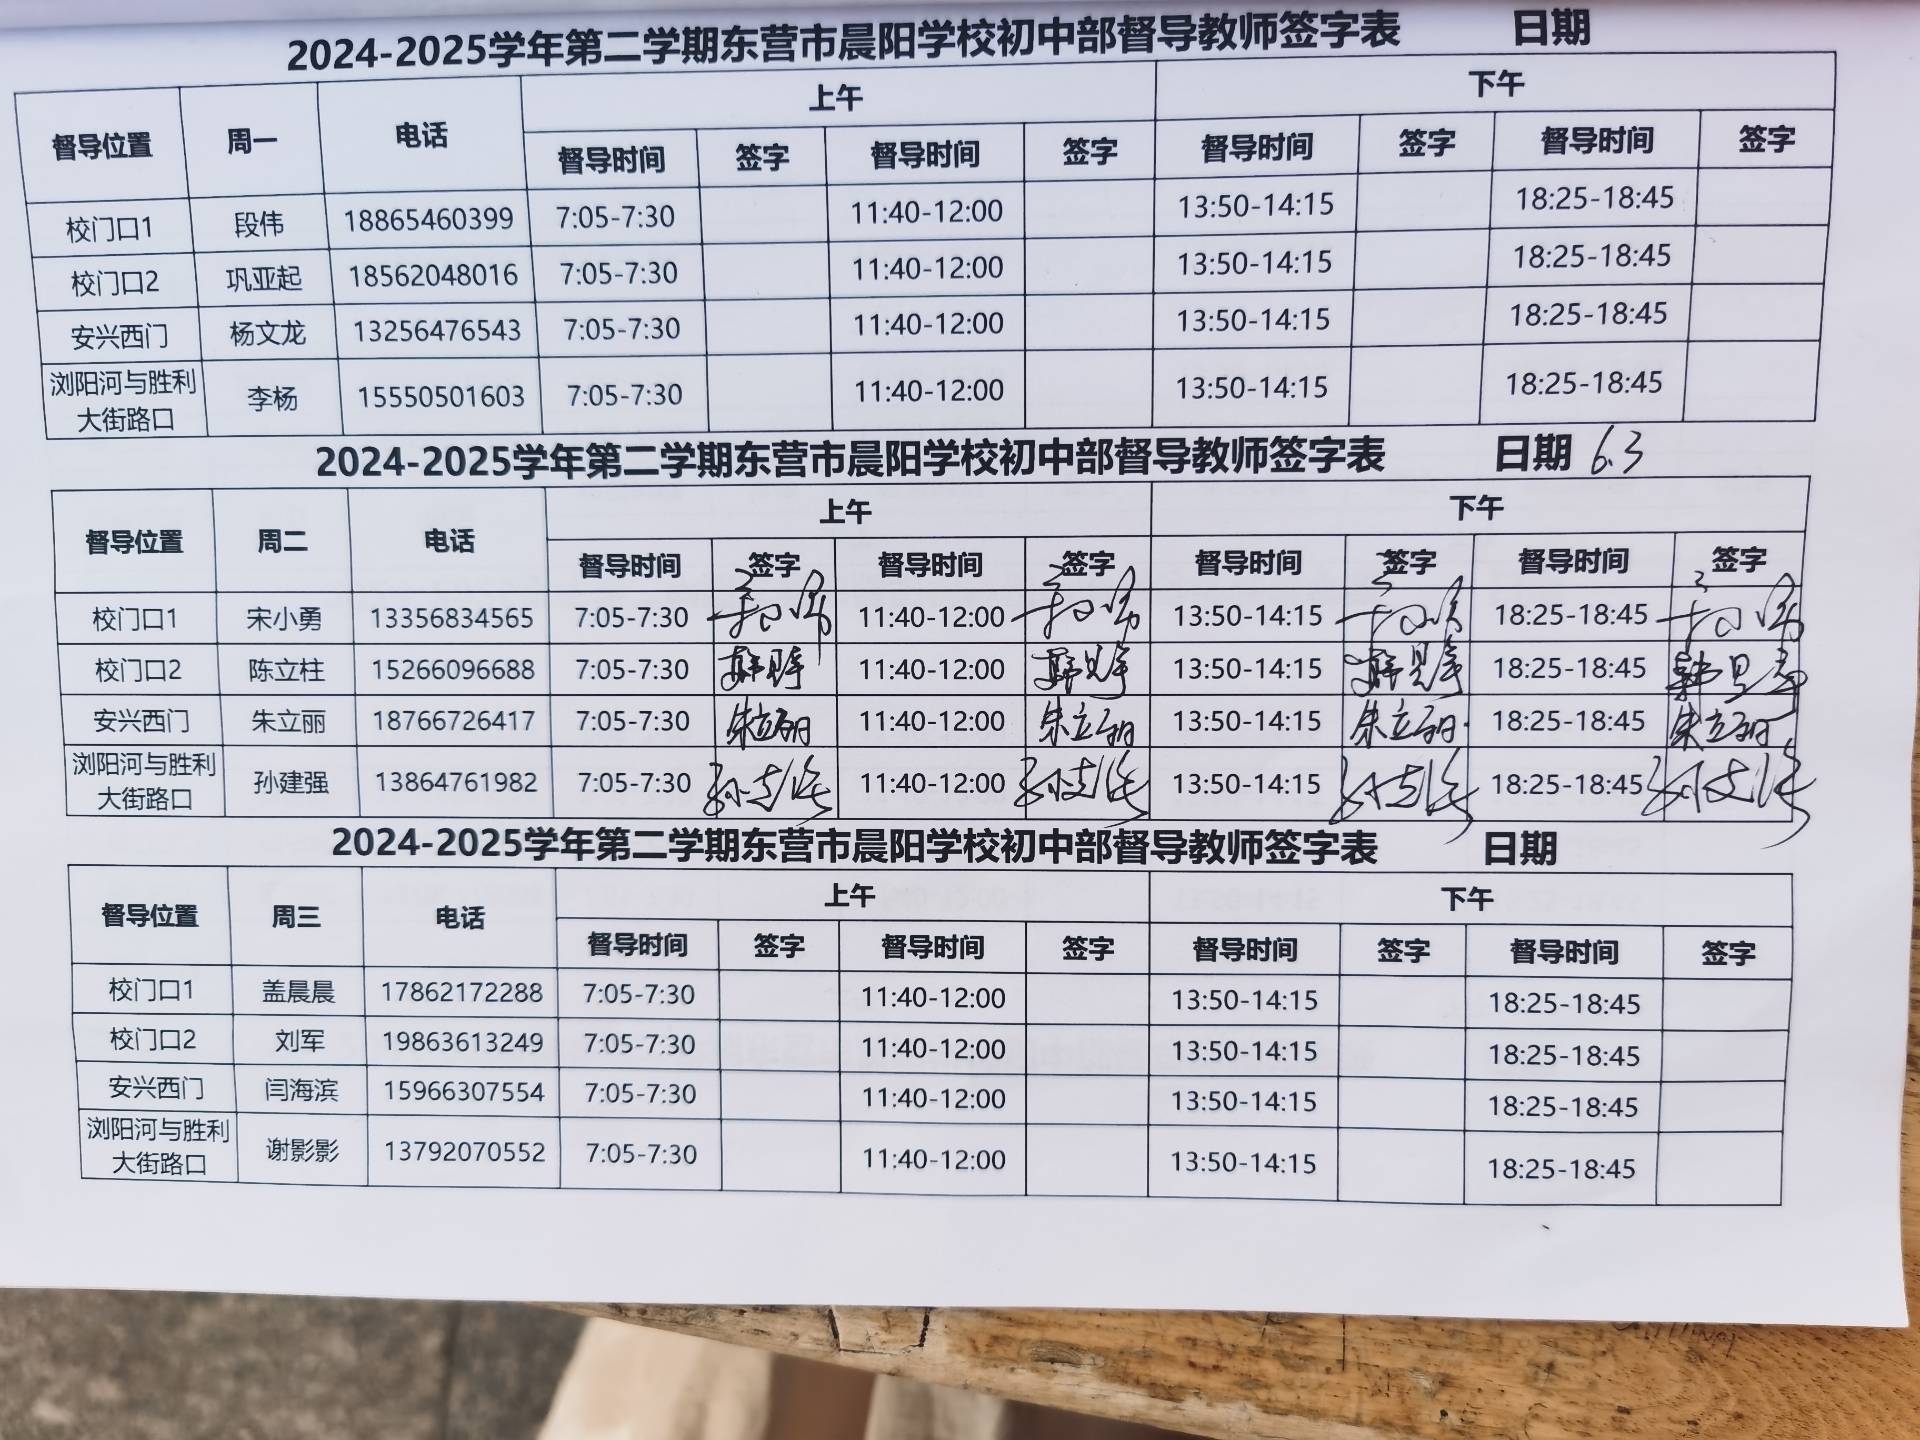 2024-2025学年第二学期东营市晨阳学校初中部督导教师签字表 日期
督导位置 周一 电话 上午 下午
督导时间 签字 督导时间 签字 督导时间 签字 督导时间 签字
校门口1 段伟 18865460399 7:05-7:30 11:40-12:00 13:50-14:15 18:25-18:45
校门口2 巩亚起 18562048016 7:05-7:30 11:40-12:00 13:50-14:15 18:25-18:45
安兴西门 杨文龙 13256476543 7:05-7:30 11:40-12:00 13:50-14:15 18:25-18:45
浏阳河与胜利
大街路口 李杨 15550501603 7:05-7:30 11:40-12:00 13:50-14:15 18:25-18:45
2024-2025学年第二学期东营市晨阳学校初中部督导教师签字表 日期 6.3
督导位置 周二 电话 上午 下午
督导时间 签字 督导时间 签字 督导时间 签字 督导时间 签字
校门口1 宋小勇 13356834565 7:05-7:30 11:40-12:00 13:50-14:15 18:25-18:45
校门口2 陈立柱 15266096688 7:05-7:30 11:40-12:00 13:50-14:15 18:25-18:45
安兴西门 朱立丽 18766726417 7:05-7:30 朱立丽 11:40-12:00 朱立丽 13:50-14:15 朱立丽 18:25-18:45 朱立丽
浏阳河与胜利
大街路口 孙建强 13864761982 7:05-7:30 11:40-12:00 13:50-14:15 18:25-18:45
2024-2025学年第二学期东营市晨阳学校初中部督导教师签字表 日期
督导位置 周三 电话 上午 下午
督导时间 签字 督导时间 签字 督导时间 签字 督导时间 签字
校门口1 盖晨晨 17862172288 7:05-7:30 11:40-12:00 13:50-14:15 18:25-18:45
校门口2 刘军 19863613249 7:05-7:30 11:40-12:00 13:50-14:15 18:25-18:45
安兴西门 闫海滨 15966307554 7:05-7:30 11:40-12:00 13:50-14:15 18:25-18:45
浏阳河与胜利
大街路口 谢影影 13792070552 7:05-7:30 11:40-12:00 13:50-14:15 18:25-18:45